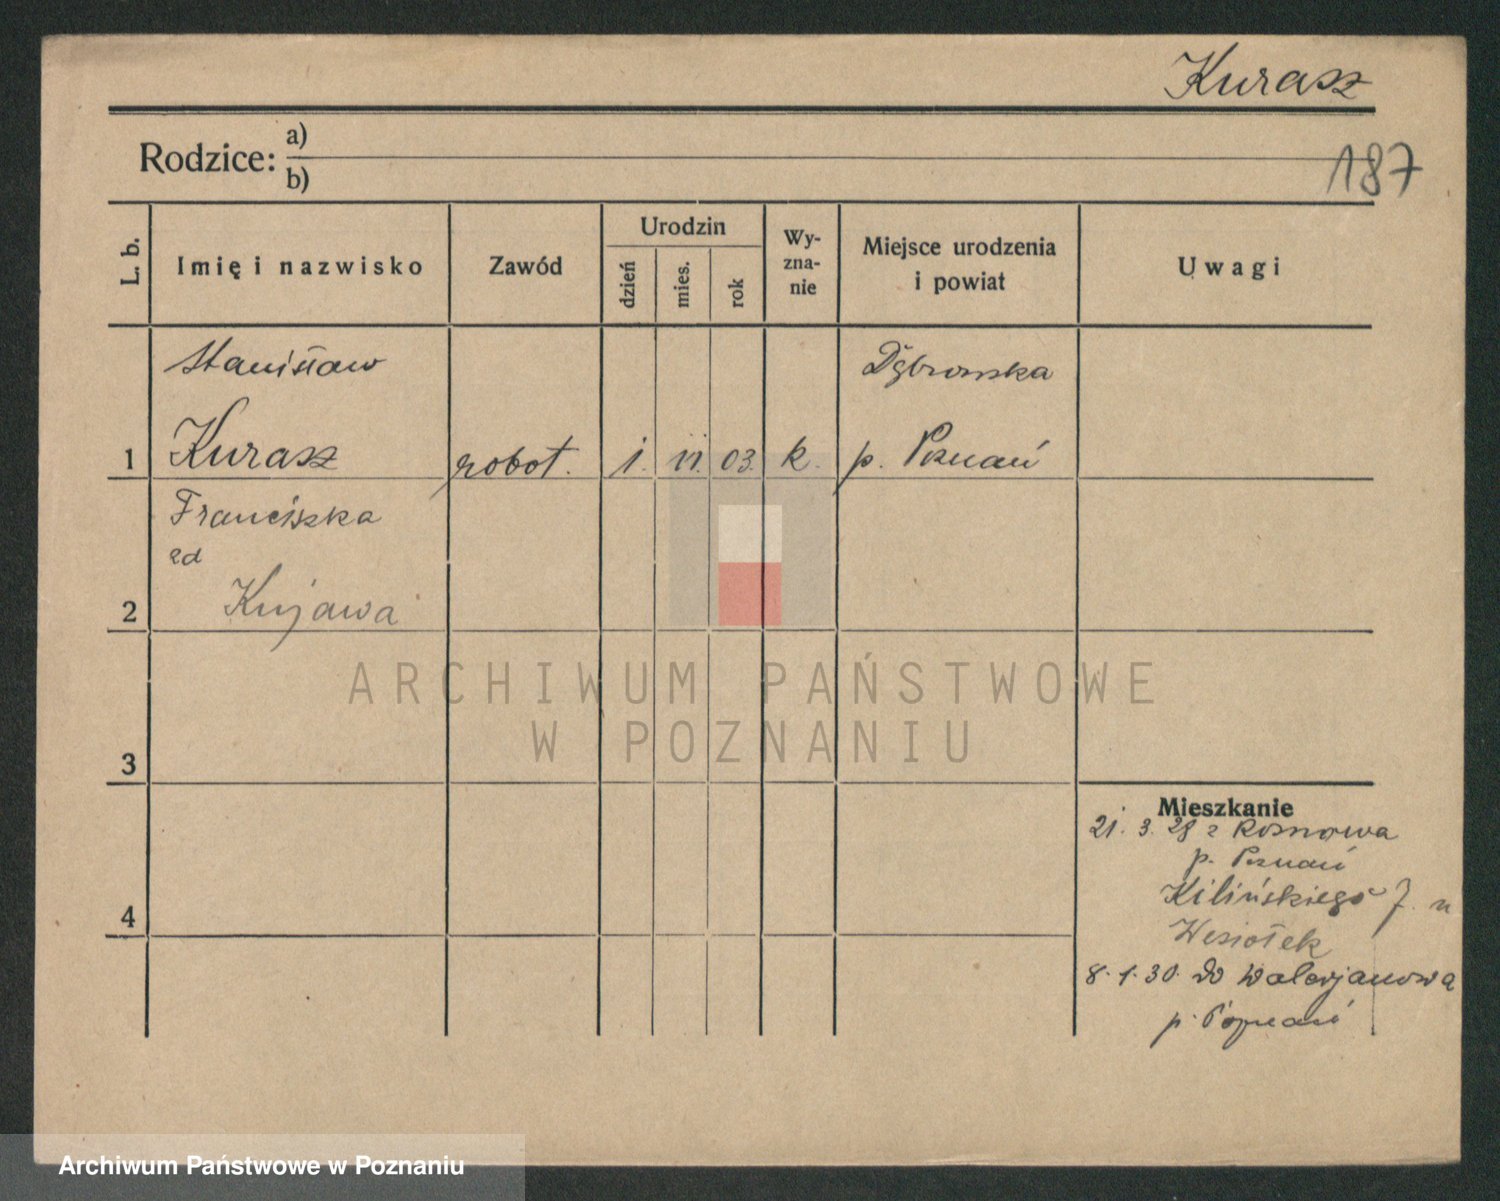 Kurasz
Rodzice: a)
b)
187
L. b.
Imię i nazwisko
Zawód
Urodzin
dzień
mies.
rok
Wy-
zna-
nie
Miejsce urodzenia
i powiat
Uwagi
Stanisław
Dąbrowska
1 Kurasz robot. 1. 11. 03. k. p. Poznań
Franciszka
zd
2 Kujawa
ARCHIWUM PAŃSTWOWE
W POZNANIU
3
Mieszkanie
21. 3. 28 z Rosnowa
p. Poznań
Kilińskiego 7. u
4
Wesiołek
8. 1. 30. do Walerjanowa
p. Poznań
Archiwum Państwowe w Poznaniu